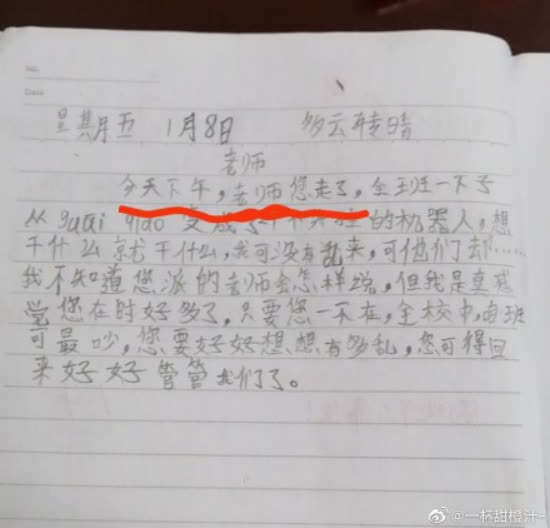 No.
Date
星期五 1月8日 多云转晴
老师
今天下午，老师您走了，全班一下子
从guai qiao变成了 的机器人，想
干什么就干什么，我可没有乱来，可他们却……
我不知道您派的老师会怎样说，但我是真感
觉您在时好多了，只要您一不在，全校中，咱班
可最吵，您要好好想想有多乱，您可得回
来好好管管我们了。
@一杯甜橙汁-